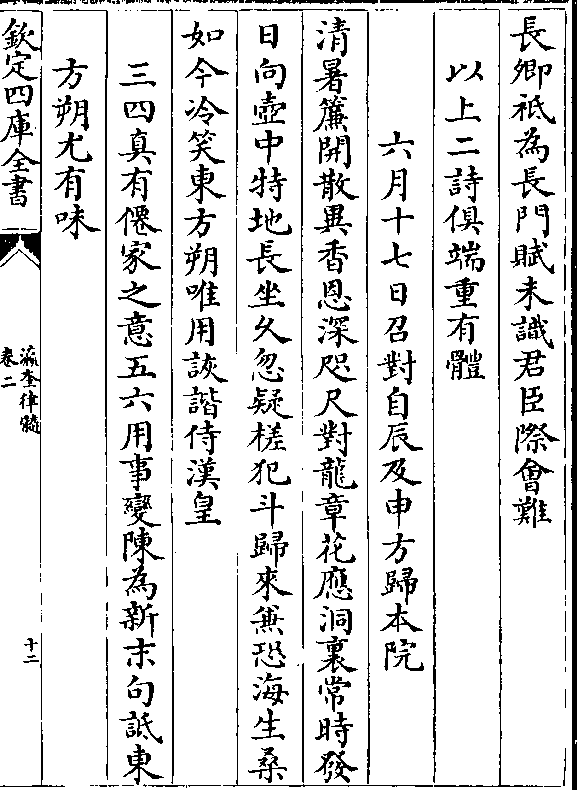 長卿祗為長門賦未識君臣際會難
以上二詩俱端重有體
六月十七日召對自辰及申方歸本院
清暑簾開散異香恩深咫尺對龍章花應洞裏常時發
日向壺中特地長坐久忽疑槎犯斗歸來兼恐海生桑
如今冷笑東方朔唯用詼諧侍漢皇
三四真有僊家之意五六用事變陳為新末句詆東
方朔尤有味
欽定四庫全書
瀛奎律髓
卷二
十二